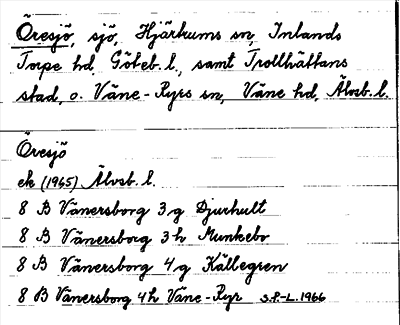 Öresjö, sjö, Hjärtums sn, Inlands
Torpe hd, Göteb. l., samt Trollhättans
stad, o. Väne-Ryrs sn, Väne hd, Älvsb. l.
Öresjö
ek (1965) Älvsb. l.
8 B Vänersborg 3g Djurhult
8 B Vänersborg 3h Munkebo
8 B Vänersborg 4g Källegren
8 B Vänersborg 4h Väne-Ryr S.P-L. 1966